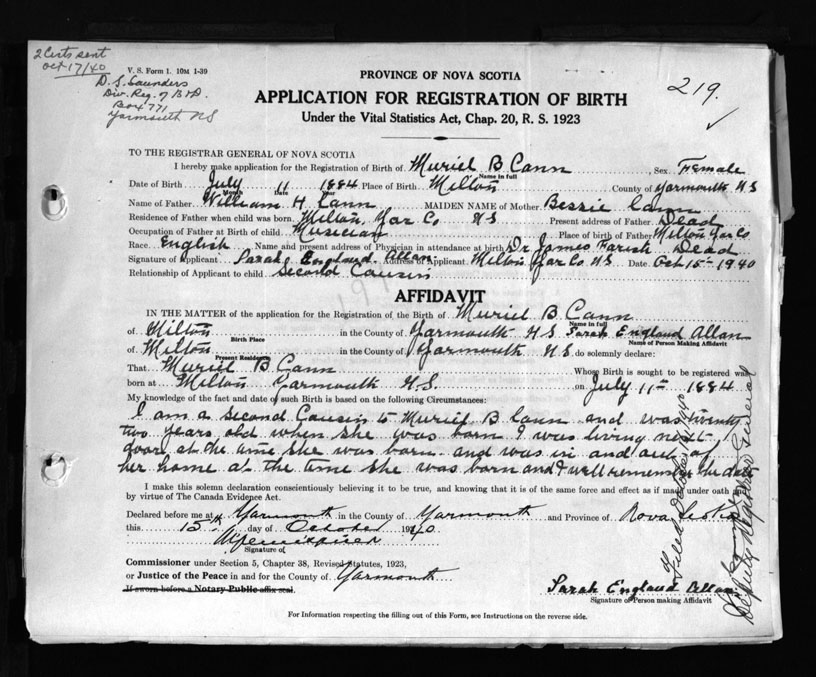 2 Certs sent
Oct 17/40
V. S. Form 1. 10M 1-39
D. S. Saunders
Div. Reg. of B & D.
Box 771
Yarmouth NS
219.
PROVINCE OF NOVA SCOTIA
APPLICATION FOR REGISTRATION OF BIRTH
Under the Vital Statistics Act, Chap. 20, R. S. 1923
TO THE REGISTRAR GENERAL OF NOVA SCOTIA
I hereby make application for the Registration of Birth of Muriel B Cann Sex Female
Name in full
Date of Birth July 11 1884 Place of Birth Milton County of Yarmouth N S
Month Date Year
Name of Father William H. Cann MAIDEN NAME of Mother Bessie
Residence of Father when child was born Milton, Yar Co N S Present address of Father Dead
Occupation of Father at Birth of child Musician Place of birth of Father Milton Yar Co
Race English Name and present address of Physician in attendance at birth Dr James Farish Dead
Signature of Applicant Sarah England Allan Address of Applicant Milton Yar Co N S Date Oct 15 - 1940
Relationship of Applicant to child Second Cousin
AFFIDAVIT
IN THE MATTER of the application for the Registration of the Birth of Muriel B Cann
Name in full
of Milton in the County of Yarmouth N S Sarah England Allan
Birth Place Name of Person Making Affidavit
of Milton in the County of Yarmouth N S do solemnly declare:
Present Residence
That Muriel B Cann Whose Birth is sought to be registered was
born at Milton Yarmouth N.S. on July 11th 1884
My knowledge of the fact and date of such Birth is based on the following Circumstances:
I am a second Cousin to Muriel B Cann and was twenty
two years old when she was born I was living next
door at the time she was born and was in and out of
her home at the time she was born and I well remember the date
I make this solemn declaration conscientiously believing it to be true, and knowing that it is of the same force and effect as if made under oath and
by virtue of The Canada Evidence Act.
Declared before me at Yarmouth in the County of Yarmouth and Province of Nova Scotia
this 15th day of October 1940.
Signature of
Commissioner under Section 5, Chapter 38, Revised Statutes, 1923,
or Justice of the Peace in and for the County of Yarmouth
If sworn before a Notary Public affix seal.
Sarah England Allan
Signature of Person making Affidavit
For Information respecting the filling out of this Form, see Instructions on the reverse side.
Filed October
Deputy Registrar General